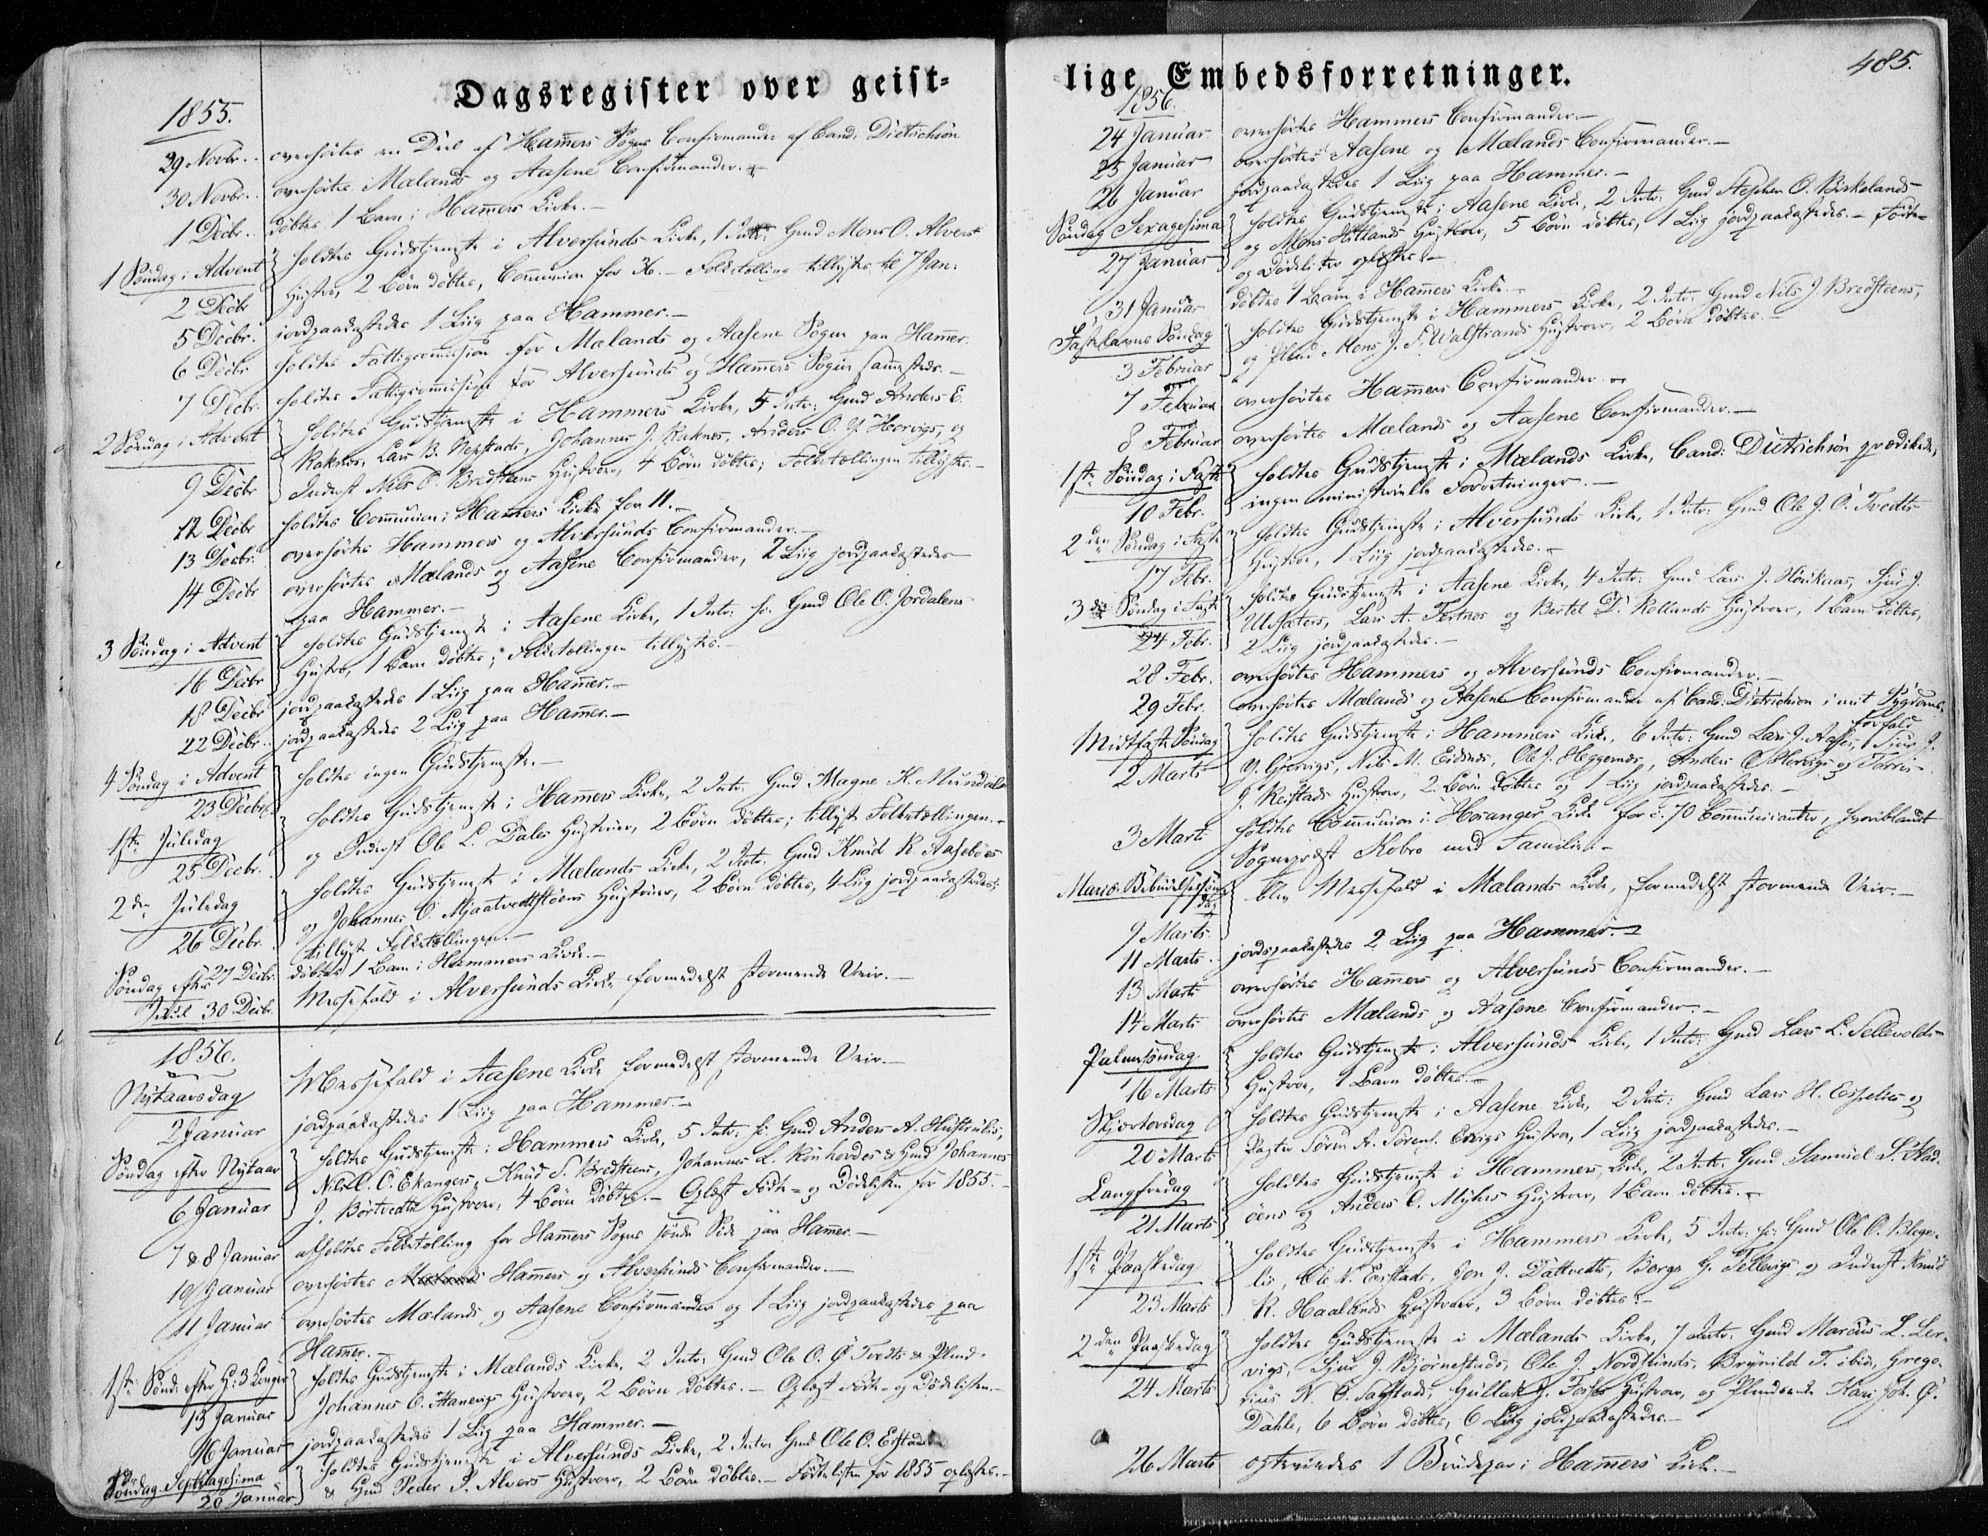 Dagsregister over geist-
1855.
29 Novbr. overhørtes en Deel af Hamers Sogns Confirmander af Cand. Dietrichson
30 Novbr. overhørtes Mælands og Aasene Confirmander.
1 Decbr. døbtes 1 Barn i Hamers Kirke.
1 Søndag i Advent holdtes Gudstjeneste i Alversunds Kirke, 1 Intr: Gmd Mons O. Alvers
2 Decbr Hustro, 2 Børn døbtes, Communion for 36. — Folketælling tillystes til 7 Jan:
5 Decbr. jordpaakastedes 1 Liig paa Hammer. —
6 Decbr holdtes Fattigcommission for Mælands og Aasene Sogne paa Hamer.
7 Decbr. holdtes Fattigcommission for Alversunds og Hamers Sogne sammesteds. —
2 Søndag i Advent holdtes Gudstjeneste i Hammers Kirke, 5 Intr: Gmd Anders E.
Raknes, Lars B. Nepstads, Johannes J. Raknes, Anders O. Y. Hervigs, og
9 Decbr Inderst Nils O. Bredsteens Hustroer, 4 Børn døbtes; Folketællingen tillystes. —
12 Decbr holdtes Communion i Hamers Kirke for 11. —
13 Decbr. overhørtes Hammers og Alversunds Confirmander. —
14 Decbr overhørtes Mælands og Aasene Confirmander, 2 Liig jordpaakastedes
paa Hammer. —
3 Søndag i Advent holdtes Gudstjeneste i Aasene Kirke, 1 Intr: Gmd Ole O. Jordalens
16 Decbr Hustro, 1 Barn døbtes; Folketællingen tillystes. —
18 Decbr jordpaakastedes 1 Liig paa Hamer. —
22 Decbr. jordpaakastedes 2 Liig paa Hamer. —
4 Søndag i Advent holdtes ingen Gudstjeneste. —
23 Decbr.
1ste Juledag holdtes Gudstjeneste i Hamers Kirke, 2 Intr: Gmd Magne K. Mundals
25 Decbr. og Inderst Ole L. Dales Hustroer, 2 Børn døbtes; tillyst Folketællingen. —
2den Juledag holdtes Gudstjeneste i Mælands Kirke, 2 Intr: Gmd Knud R. Aasebøes
og Johannes O. Mjaatvedtstøens Hustroer, 2 Børn døbtes, 4 Liig jordpaakastedes;
26 Decbr. tillyst Folketællingen. —
27 Decbr. døbtes 1 Barn i Hammers Kirke. —
Søndag efter Juul 30 Decbr. Messefald i Alversunds Kirke formedelst stormende Veir. —
1856.
Nytaarsdag Messefald i Aasene Kirke formedelst stormende Veir. —
2 Januar jordpaakastedes 1 Liig paa Hammer. —
Søndag efter Nytaar holdtes Gudstjeneste i Hammers Kirke, 5 Intr: Gmd Anders A.
Nils O. Ö. Ekangers, Knud S. Bredsteens, Johannes L. Rönhovdes & Hmd Johannes
6 Januar J. Børtvedts Hustroer, 4 Børn døbtes. — Oplæst Føde- og Dødslisten for 1855. —
7 & 8 Januar afholdtes Folketælling for Hamers Sogns søndre Side paa Hamer. —
10 Januar overhørtes Hamers og Alversunds Confirmander. —
11 Januar overhørtes Mælands og Aasene Confirmander og 1 Liig jordpaakastedes paa
Hamer. —
1ste Sønd. efter H. 3 Konger holdtes Gudstjeneste i Mælands Kirke, 2 Intr: Gmd Ole O. Ø Tvedts &
13 Januar Johannes O. Hanevigs Hustroer, 2 Børn døbtes. — Oplæst Føde- og Dødslisten. —
16 Januar jordpaakastedes 1 Liig paa Hammer. —
Søndag Septuagesima holdtes Gudstjeneste i Alversunds Kirke, 2 Intr: Gmd Ole O. Erstads
20 Januar & Gmd Peder P. Alvers Hustroer, 2 Børn døbtes. — Fødelisten for 1855 oplæstes. —
lige Embedsforretninger.
485.
1856.
24 Januar. overhørtes Hammers Confirmander. —
25 Januar overhørtes Aasene og Mælands Confirmander. —
26 Januar jordpaakastedes 1 Liig paa Hammer. —
Søndag Sexagesima holdtes Gudstjeneste i Aasene Kirke, 2 Intr: Gmd Stephen O. Birkelands
og Mons Hitlands Hustroer, 5 Børn døbtes, 1 Liig jordpaakastedes. — Føde-
27 Januar og Dødslister oplæstes. —
31 Januar døbtes 1 Barn i Hamers Kirke. —
Fastelavns Søndag holdtes Gudstjeneste i Hammers Kirke, 2 Intr: Gmd Nils J. Bredsteens,
3 Februar og Mons J. S. Walstrands Hustroer, 2 Børn døbtes. —
7 Februar overhørtes Hamers Confirmander. —
8 Februar overhørtes Mælands og Aasene Confirmander. —
1ste Søndag i Faste holdtes Gudstjeneste i Mælands Kirke, Cand: Dietrichson prædikede,
10 Febr. ingen ministerielle Forretninger. —
2den Søndag i Faste holdtes Gudstjeneste i Alversunds Kirke, 1 Intr: Gmd Ole J. Ö. Tvedts
17 Febr. Hustroe, 1 Liig jordpaakastedes. —
3die Søndag i Faste holdtes Gudstjeneste i Aasene Kirke, 4 Intr: Gmd Lars J. Steinknæs, Sjur J.
Ulsæters, Lars A. Tertnes og Bertel D. Kellands Hustroer, 1 Barn døbtes,
24 Febr. 2 Liig jordpaakastedes. —
28 Febr. overhørtes Hammers og Alversunds Confirmander. —
29 Febr. overhørtes Mælands og Aasene Confirmander af Cand: Dietrichson i mit Sygdoms-
forfald
Midtfaste Søndag holdtes Gudstjeneste i Hammers Kirke, 6 Intr: Gmd Lars J. Aases, Sjur J.
2 Marts Y. Gjervigs, Nils M. Eidsnes, Ole J. Heggernæs, Anders O. Hervigs og Torris
J. Reistads Hustroer, 2 Børn døbtes og 1 Liig jordpaakastedes. —
3 Marts holdtes Communion i Hosanger Kirke for c. 70 Communicanter, hvoriblandt
Sognepræst Kobro med Familie. —
Mariæ Bebudelsesdag blev Messefald i Mælands Kirke, formedelst stormende Veir. —
9 Marts
11 Marts jordpaakastedes 2 Liig paa Hammer. —
13 Marts overhørtes Hamers og Alversunds Confirmander. —
14 Marts overhørtes Mælands og Aasene Confirmander. —
Palmesøndag holdtes Gudstjeneste i Alversunds Kirke, 1 Intr: Gmd Lars L. Sellevolds
16 Marts Hustroe, 1 Barn døbtes. —
Skjærtorsdag holdtes Gudstjeneste i Aasene Kirke, 2 Intr: Gmd Lars H. Espelies og
20 Marts Søren A. Sörens. Ervigs Hustroe, 1 Liig jordpaakastedes. —
Langfredag holdtes Gudstjeneste i Hammers Kirke, 2 Intr: Gmd Samuel S. Stad-
21 Marts öens og Anders C. Mykers Hustroer, 1 Barn døbtes. —
1ste Paaskedag holdtes Gudstjeneste i Hammers Kirke, 5 Intr: Gmd Ole O. Blege-
lis, Ole N. Erstads, Jon J. Dattvedts, Borge G. Tellevigs og Inderst Knud
23 Marts R. Haalands Hustroer, 3 Børn døbtes. —
2den Paaskedag holdtes Gudstjeneste i Mælands Kirke, 7 Intr: Gmd Marcus L. Ler-
vigs, Sjur J. Bjørnestads, Ole J. Nordsunds, Brynild T. ibid, Grego-
24 Marts rius N. O. Taqstads, Gullak J. Fosses Hustroer, og Kari Joh. Ö.
Dahle, 6 Børn døbtes, 6 Liig jordpaakastedes. —
26 Marts egteviedes 1 Brudepar i Hamers Kirke. —